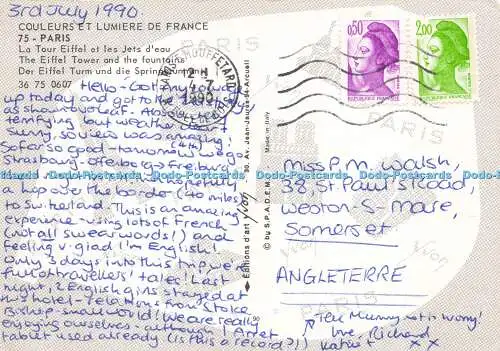 3rd July 1990.
COULEURS ET LUMIERE DE FRANCE
75 - PARIS
La Tour Eiffel et les Jets d'eau
The Eiffel Tower and the fountains
Der Eiffel Turm und die Springbrunnen
36 75 0607
Hello - Got
up today and got to the
as
terrifying but weather clear &
sunny, so view was amazing!
So far so good - tomorrow we go
Strasbourg - Offenburg - Freiburg
hopefully
a hop over the border (40 miles)
to Switzerland. This is an amazing
experience - using lots of French
(not all swear words!) and
feeling v. glad I'm English!
Only 3 days into this trip we're
full of travellers' tales! Last
night, 2 English girls stayed at
this hotel - relations from Stoke
Bishop - small world! We are really
enjoying ourselves - although 1 Arret
tablet used already (is this a record?!)
Éditions d'art yvon
30, Av. Jean-Jacques
© by S.P.A.D.E.M.
Made in Italy
PARIS MOUFFETARD
4-7
1990
0,50
REPUBLIQUE FRANÇAISE
2,00
REPUBLIQUE FRANÇAISE
Miss P.M. Walsh,
38, St. Paul's Road,
Weston-S-Mare,
Somerset
ANGLETERRE
Tell Mummy not to worry!
love, Richard
Katie + x x
PARIS
PARIS
yvon